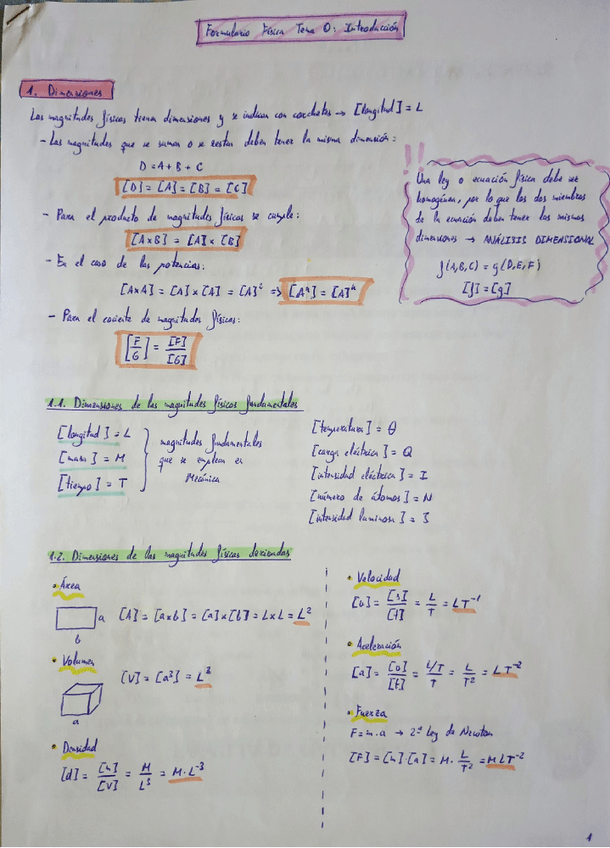 Formulario Física Tema 0: Introducción
1. Dimensiones
Las magnitudes físicas tienen dimensiones y se indican con corchetes → [longitud] = L
- Las magnitudes que se suman o se restan deben tener la misma dimensión:
D = A + B + C
[D] = [A] = [B] = [C]
- Para el producto de magnitudes físicas se cumple:
[A×B] = [A] × [B]
- En el caso de las potencias:
[A×A] = [A] × [A] = [A]² => [Aⁿ] = [A]ⁿ
- Para el cociente de magnitudes físicas:
[F/G] = [F]/[G]
!!
Una ley o ecuación física debe ser
homogénea, por lo que los dos miembros
de la ecuación deben tener las mismas
dimensiones → ANÁLISIS DIMENSIONAL
f(A,B,C) = g(D,E,F)
[f] = [g]
1.1. Dimensiones de las magnitudes físicas fundamentales
[longitud] = L
[masa] = M
[tiempo] = T
magnitudes fundamentales
que se emplean en
Mecánica
[temperatura] = θ
[carga eléctrica] = Q
[intensidad eléctrica] = I
[número de átomos] = N
[intensidad luminosa] = J
1.2. Dimensiones de las magnitudes físicas derivadas
• Área
a
b
[A] = [a×b] = [a]×[b] = L×L = L²
• Volumen
a
[V] = [a³] = L³
• Densidad
[d] = [m]/[V] = M/L³ = M·L⁻³
• Velocidad
[v] = [s]/[t] = L/T = LT⁻¹
• Aceleración
[a] = [v]/[t] = L/T/T = L/T² = LT⁻²
• Fuerza
F = m·a → 2ª Ley de Newton
[F] = [m][a] = M· L/T² = MLT⁻²
1